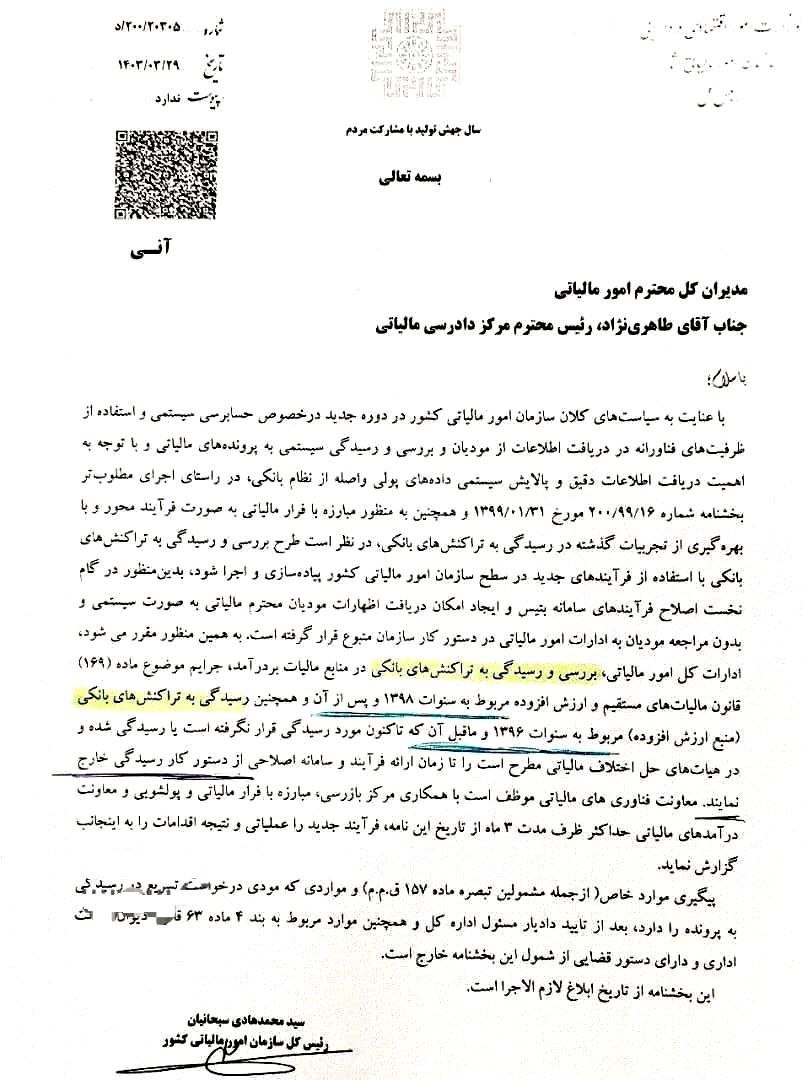 شماره ۲۰۰/۲۰۳۰۵/د
تاریخ ۱۴۰۳/۰۳/۲۹
پیوست ندارد
سال جهش تولید با مشارکت مردم
بسمه تعالی
آنـــی
مدیران کل محترم امور مالیاتی
جناب آقای طاهری‌نژاد، رئیس محترم مرکز دادرسی مالیاتی
با سلام؛
با عنایت به سیاست‌های کلان سازمان امور مالیاتی کشور در دوره جدید درخصوص حسابرسی سیستمی و استفاده از
ظرفیت‌های فناورانه در دریافت اطلاعات از مودیان و بررسی و رسیدگی سیستمی به پرونده‌های مالیاتی و با توجه به
اهمیت دریافت اطلاعات دقیق و پالایش سیستمی داده‌های پولی واصله از نظام بانکی، در راستای اجرای مطلوب‌تر
بخشنامه شماره ۲۰۰/۹۹/۱۶ مورخ ۱۳۹۹/۰۱/۳۱ و همچنین به منظور مبارزه با فرار مالیاتی به صورت فرآیند محور و با
بهره‌گیری از تجربیات گذشته در رسیدگی به تراکنش‌های بانکی، در نظر است طرح بررسی و رسیدگی به تراکنش‌های
بانکی با استفاده از فرآیندهای جدید در سطح سازمان امور مالیاتی کشور پیاده‌سازی و اجرا شود، بدین‌منظور در گام
نخست اصلاح فرآیندهای سامانه بتیس و ایجاد امکان دریافت اظهارات مودیان محترم مالیاتی به صورت سیستمی و
بدون مراجعه مودیان به ادارات امور مالیاتی در دستور کار سازمان متبوع قرار گرفته است. به همین منظور مقرر می شود،
ادارات کل امور مالیاتی، بررسی و رسیدگی به تراکنش‌های بانکی در منابع مالیات بردرآمد، جرایم موضوع ماده (۱۶۹)
قانون مالیات‌های مستقیم و ارزش افزوده مربوط به سنوات ۱۳۹۸ و پس از آن و همچنین رسیدگی به تراکنش‌های بانکی
(منبع ارزش افزوده) مربوط به سنوات ۱۳۹۶ و ماقبل آن که تاکنون مورد رسیدگی قرار نگرفته است یا رسیدگی شده و
در هیات‌های حل اختلاف مالیاتی مطرح است را تا زمان ارائه فرآیند و سامانه اصلاحی از دستور کار رسیدگی خارج
نمایند. معاونت فناوری های مالیاتی موظف است با همکاری مرکز بازرسی، مبارزه با فرار مالیاتی و پولشویی و معاونت
درآمدهای مالیاتی حداکثر ظرف مدت ۳ ماه از تاریخ این نامه، فرآیند جدید را عملیاتی و نتیجه اقدامات را به اینجانب
گزارش نماید.
پیگیری موارد خاص( ازجمله مشمولین تبصره ماده ۱۵۷ ق.م.م) و مواردی که مودی درخواست تسریع در رسیدگی
به پرونده را دارد، بعد از تایید دادیار مسئول اداره کل و همچنین موارد مربوط به بند ۴ ماده ۶۳
اداری و دارای دستور قضایی از شمول این بخشنامه خارج است.
این بخشنامه از تاریخ ابلاغ لازم الاجرا است.
سید محمدهادی سبحانیان
رئیس کل سازمان امور مالیاتی کشور